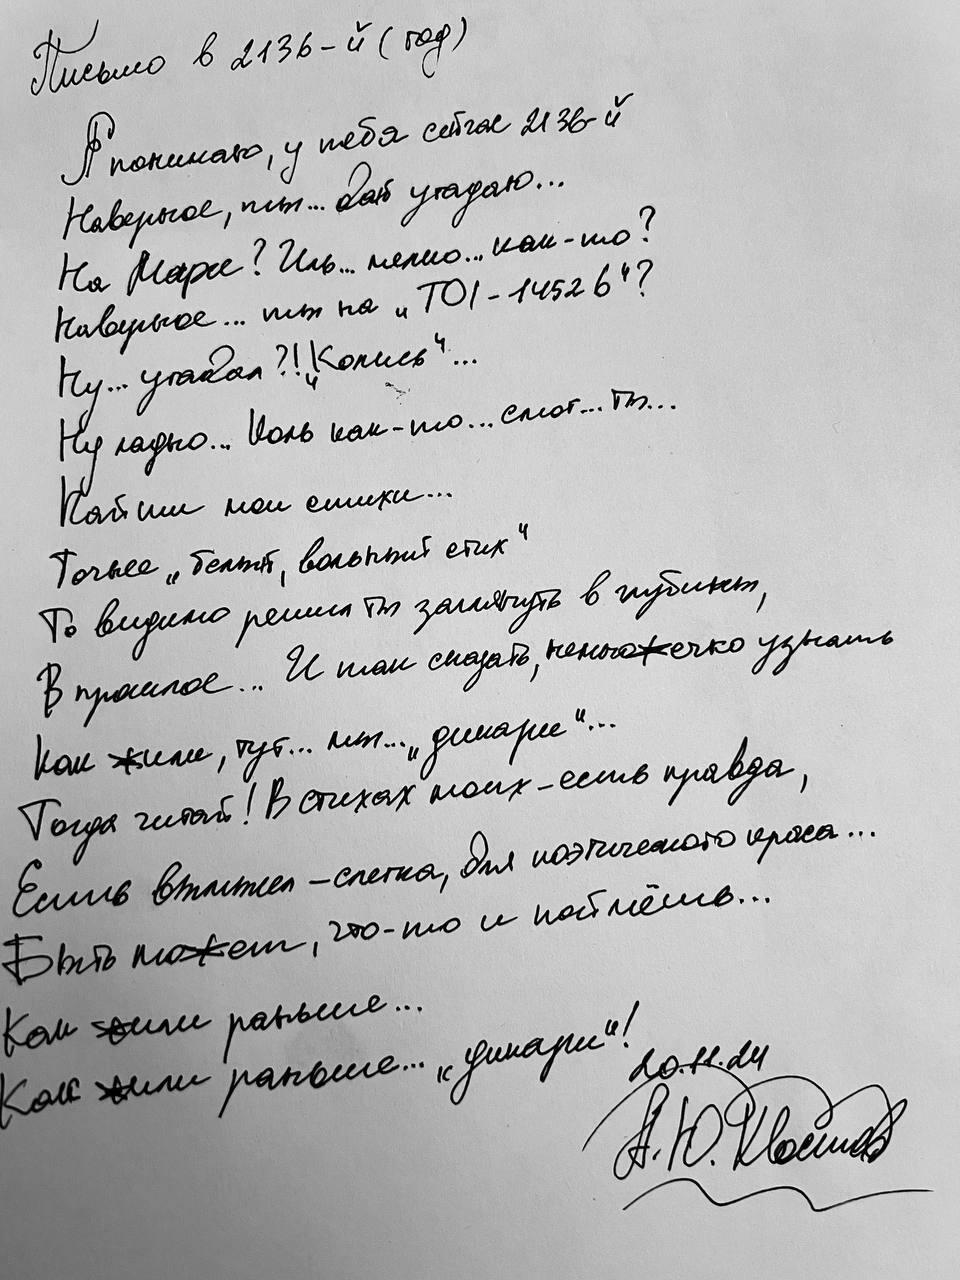 Письмо в 2136-й (год)
Я понимаю, у тебя сейчас 2136-й
Наверное, ты... дай угадаю...
На Марсе? Иль... мелко... как-то?
Наверное... ты на „TOI-1452 b"?
Ну... угадал?! „Колись"...
Ну ладно... Коль как-то... смог... ты...
Найти мои стихи...
Точнее „белый, вольный стих"
То видимо решил ты заглянуть в глубины,
В прошлое... И так сказать, немножечко узнать
Как жили, тут... мы... „дикари"...
Тогда читай! В стихах моих - есть правда,
Есть вымысел - слегка, для поэтического краса...
Быть может, что-то и поймёшь...
Как жили раньше...
Как жили раньше... „дикари"!
20.11.24
А.Ю. Хвостов